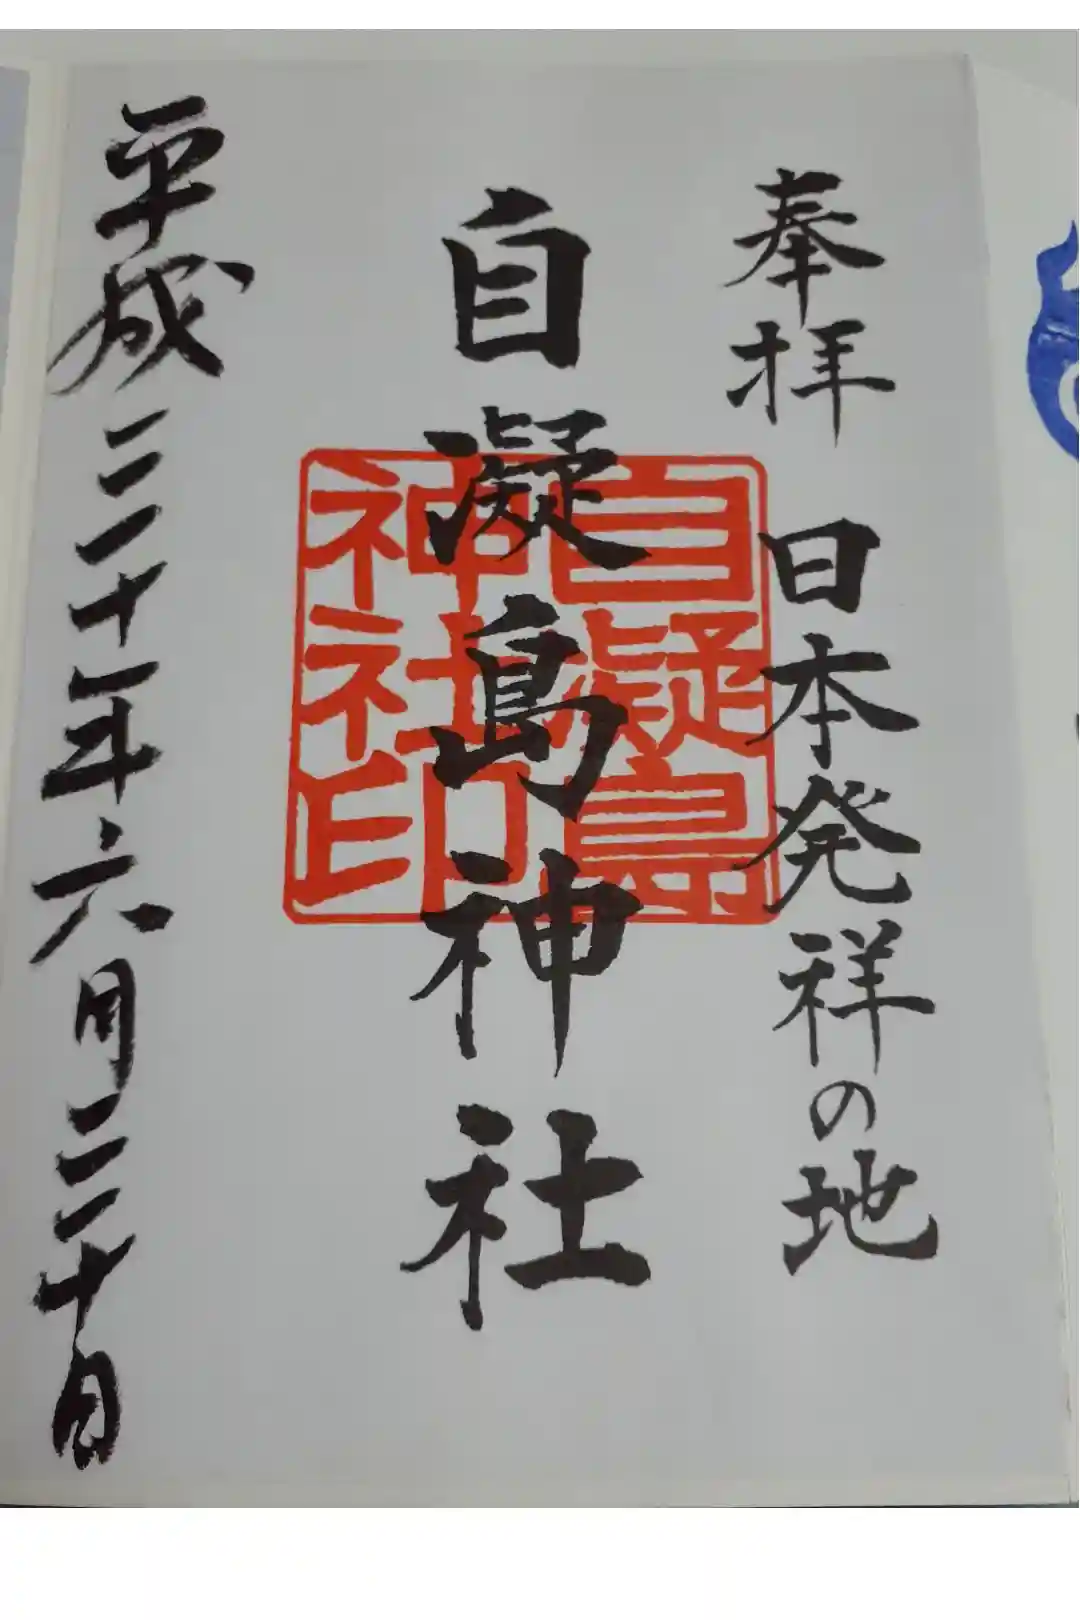 奉拝　日本発祥の地
自凝島神社
平成三十年六月三十日
自凝島
神社印